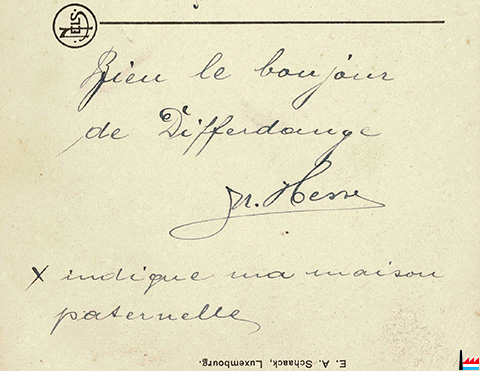 NELS
Bien le bonjour
de Differdange
Jn. Hesse
X indique ma maison
paternelle
E. A. Schaack, Luxembourg.